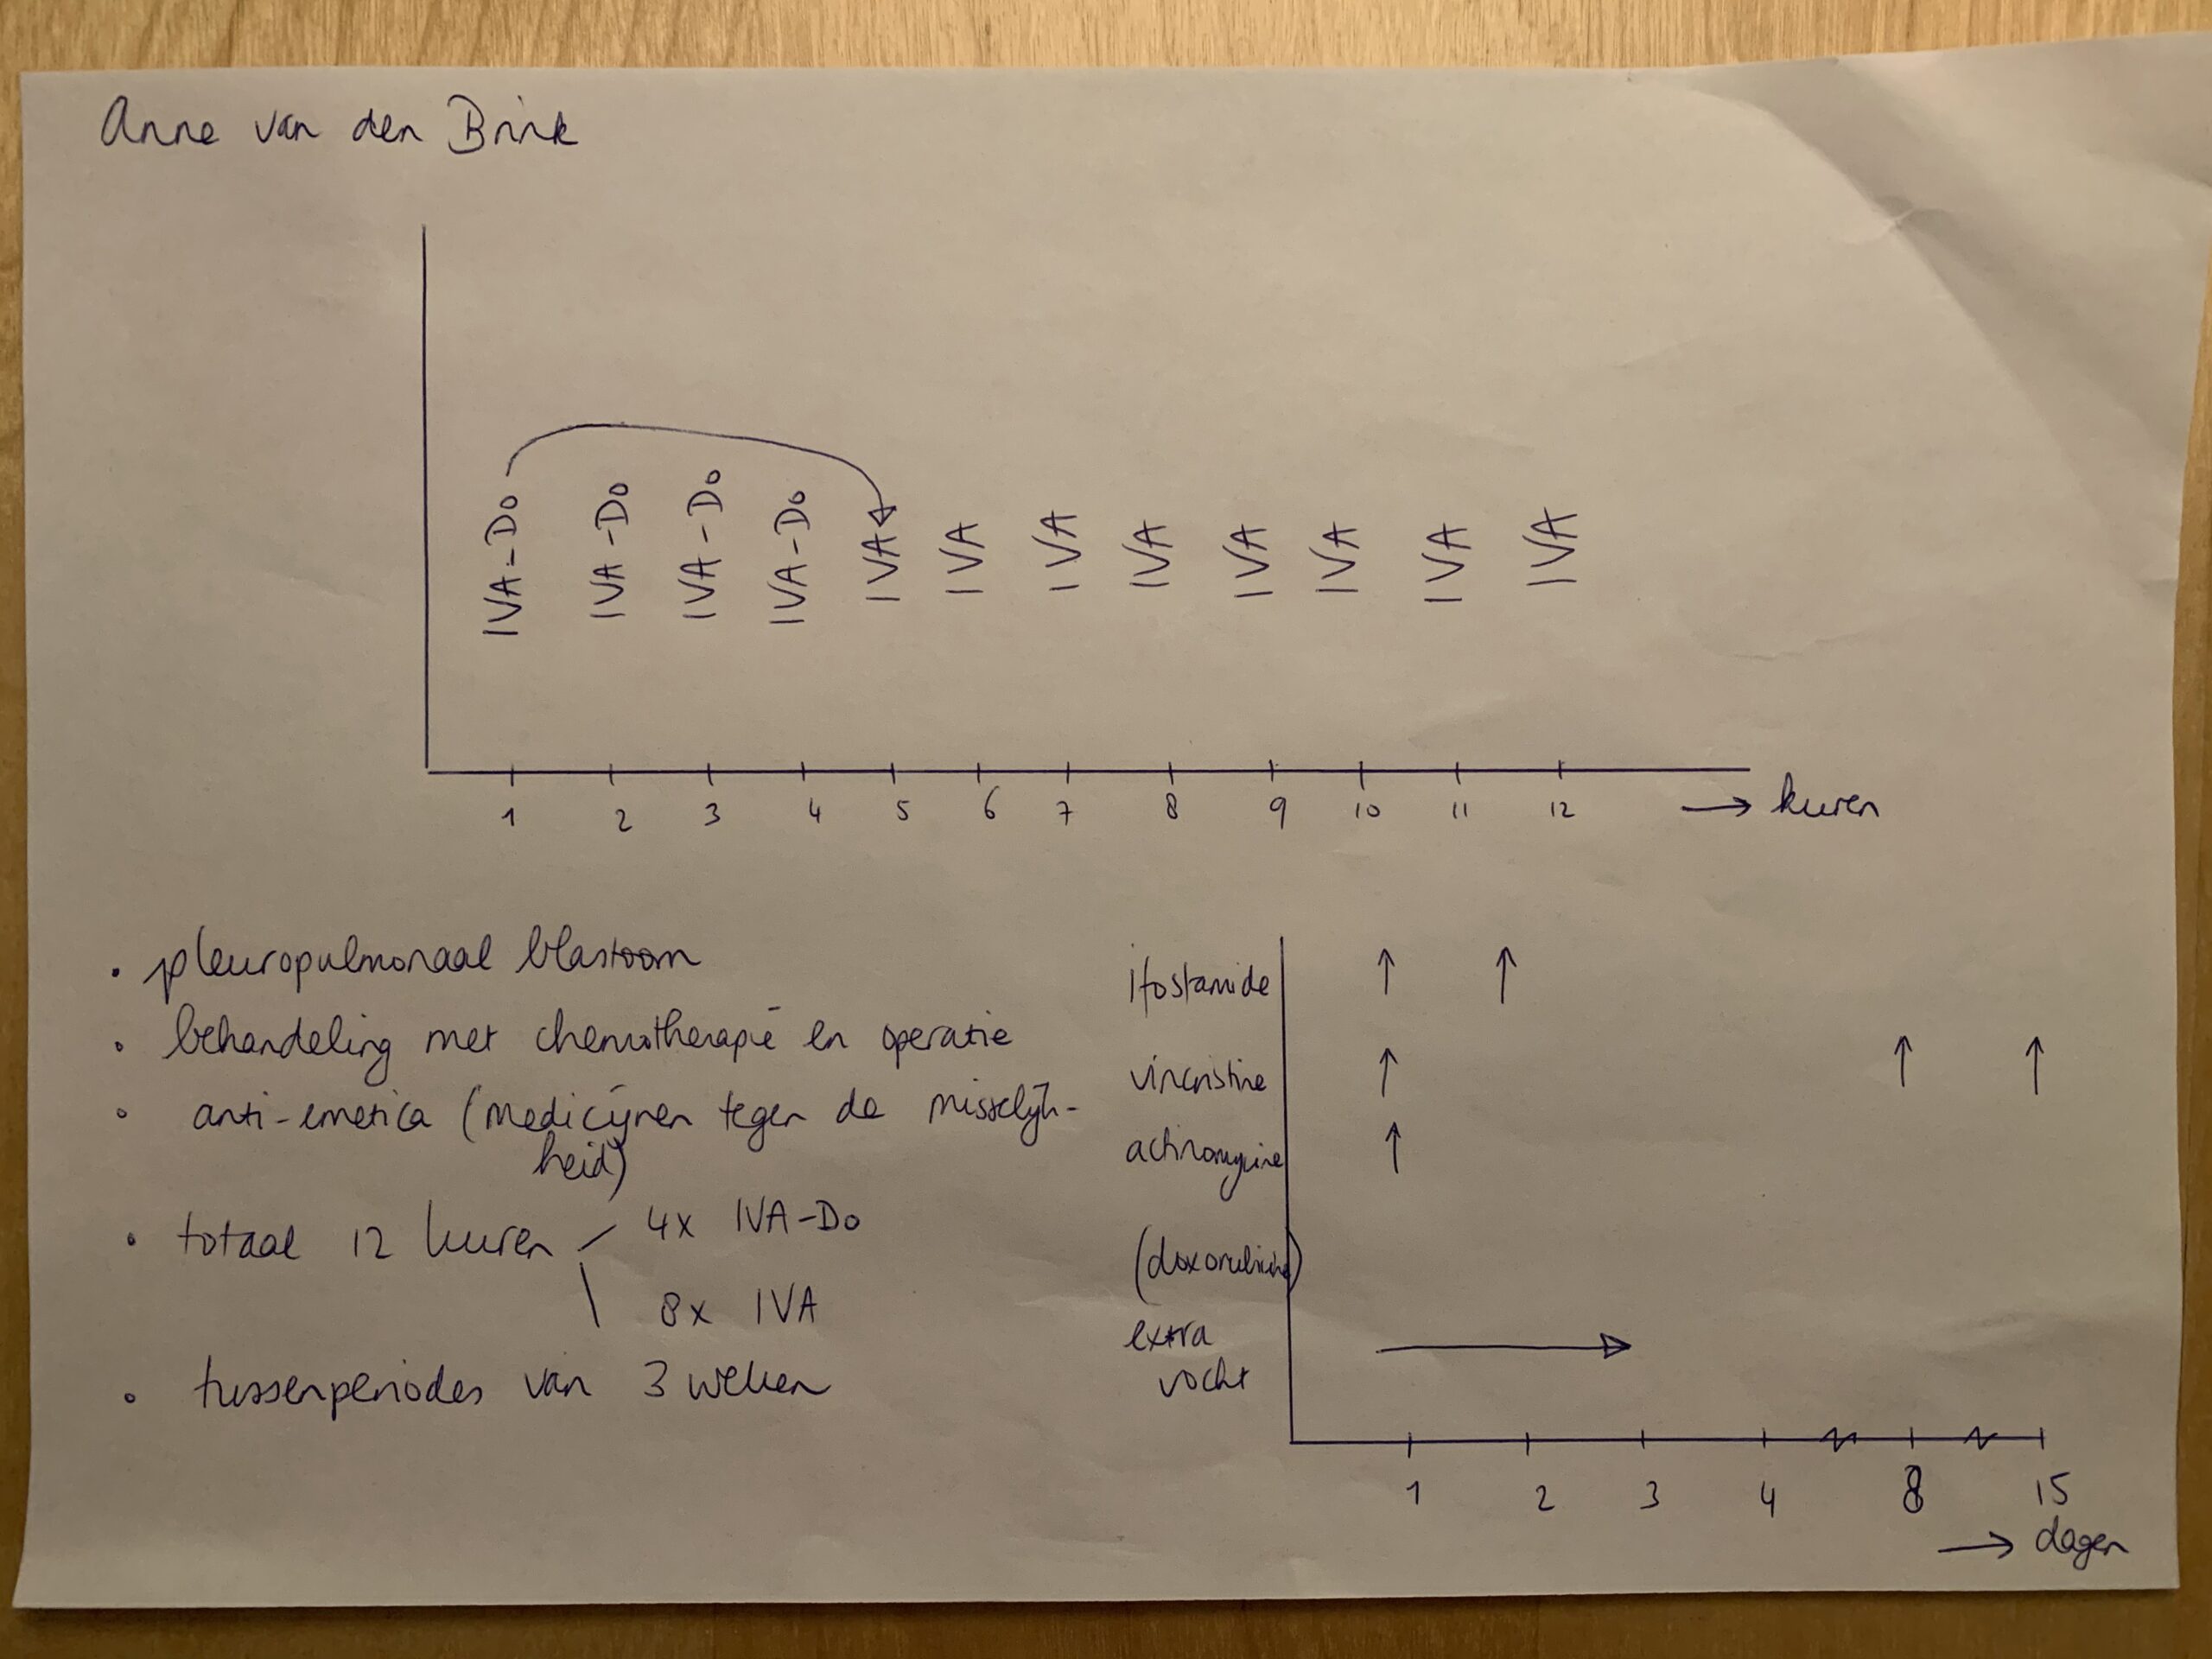 Anne van den Brink
IVA-Do IVA-Do IVA-Do IVA-Do IVA IVA IVA IVA IVA IVA IVA IVA
1 2 3 4 5 6 7 8 9 10 11 12 → kuren
• pleuropulmonaal blastoom
• behandeling met chemotherapie en operatie
• anti-emetica (medicijnen tegen de misselijk-
heid)
• totaal 12 kuren
4x IVA-Do
8x IVA
• tussenperiodes van 3 weken
ifosfamide ↑ ↑
vincristine ↑ ↑ ↑
actinomycine ↑
(doxorubicine)
extra →
vocht
1 2 3 4 8 15
→ dagen